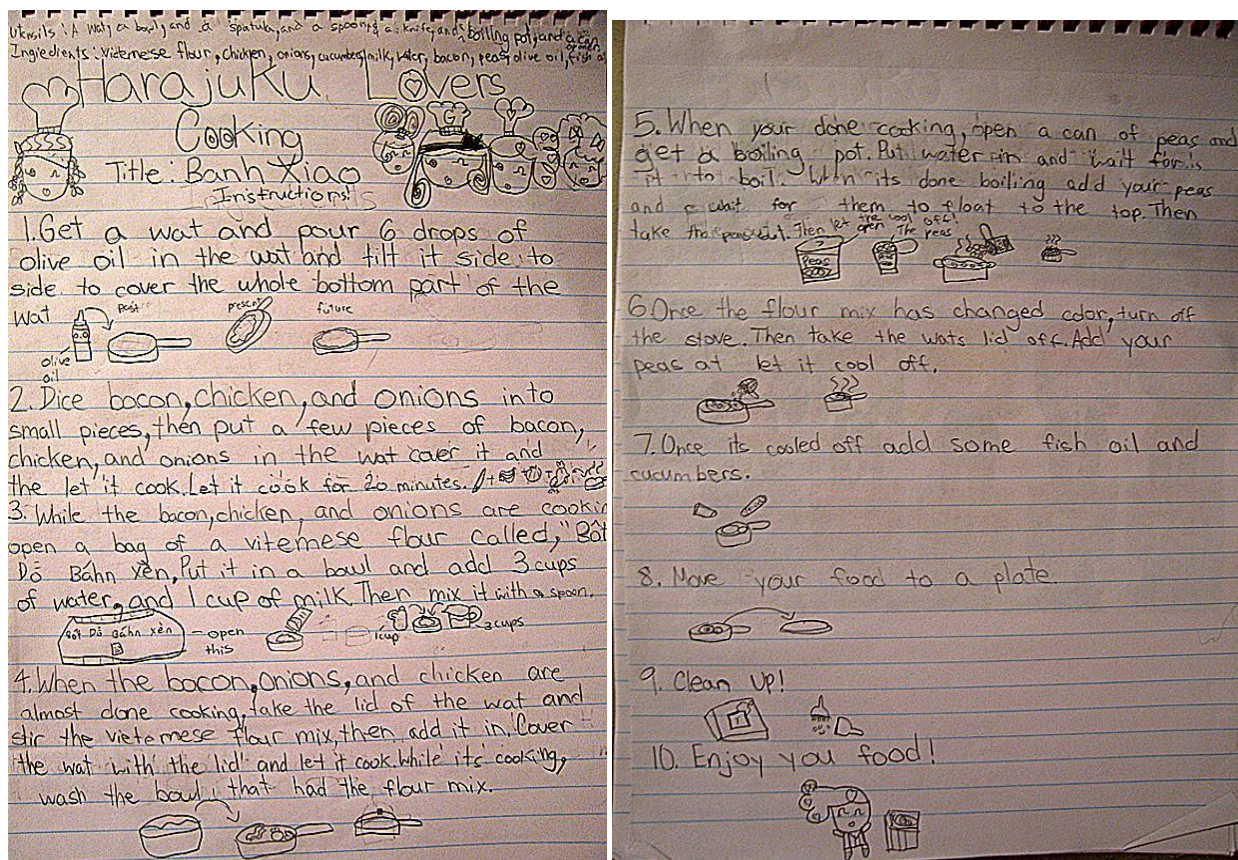 Utensils: A wat, a bowl, and a spatula, and a spoon, & a knife, and boiling pot, and a can
Ingredients: vietemese flour, chicken, onions, cucumbers, milk, water, bacon, peas, olive oil, fish
Harajuku Lovers
Cooking
Title: Banh Xiao
Instructions!
1. Get a wat and pour 6 drops of
olive oil in the wat and tilt it side to
side to cover the whole bottom part of the
wat
past
present
future
olive
oil
2. Dice bacon, chicken, and onions into
small pieces, then put a few pieces of bacon,
chicken, and onions in the wat cover it and
the let it cook. Let it cook for 20 minutes.
3. While the bacon, chicken, and onions are cookin
open a bag of a vitemese flour called, "Bột
Dổ Báhn xèn, Put it in a bowl and add 3 cups
of water, and 1 cup of milk. Then mix it with a spoon.
Bột Dổ Báhn xèn
open
this
1 cup
3 cups
4. When the bacon, onions, and chicken are
almost done cooking, take the lid of the wat and
stir the vietemese flour mix, then add it in. Cover
the wat with the lid and let it cook. While its cooking,
wash the bowl that had the flour mix.
5. When your done cooking, open a can of peas and
get a boiling pot. Put water in and wait for
it to boil. When its done boiling add your peas
and wait for them to float to the top. Then
take the peas out. Then let the peas cool off!
open
Peas
6. Once the flour mix has changed color, turn off
the stove. Then take the wats lid off. Add your
peas at let it cool off.
7. Once its cooled off add some fish oil and
cucumbers.
8. Move your food to a plate.
9. Clean up!
10. Enjoy you food!